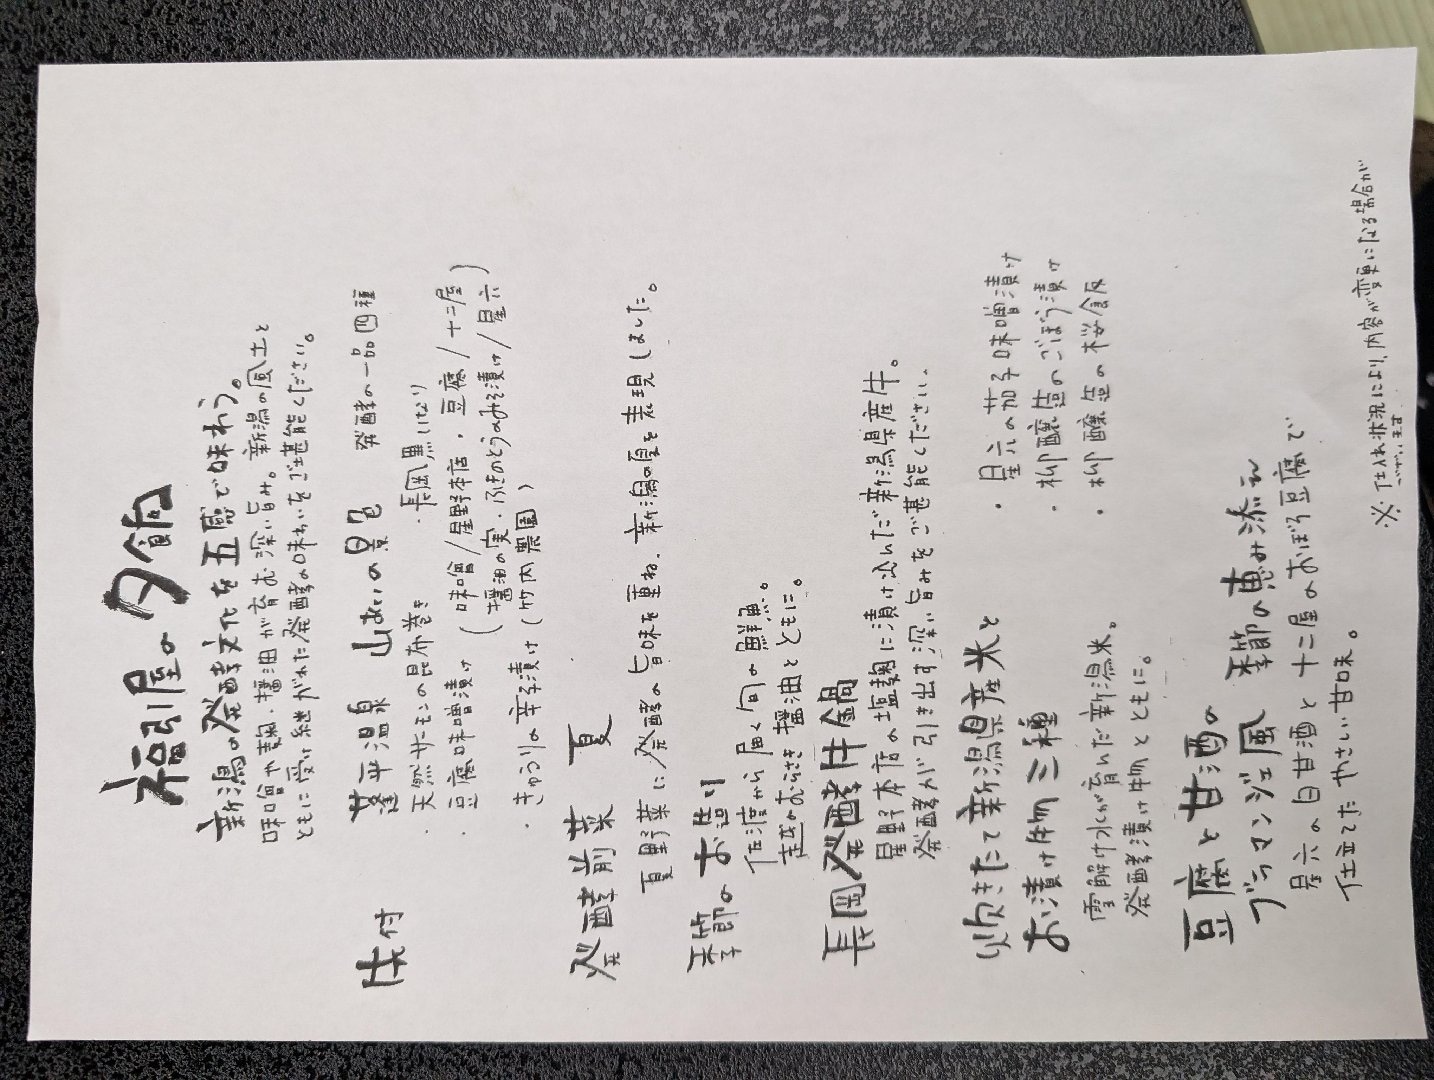 福引屋の夕飯
新潟の発酵文化を五感で味わう。
味噌や麹、醤油が育む深い旨み。新潟の風土と
ともに受け継がれた発酵の味わいをご堪能ください。
先付 蓬平温泉 山あいの景色 発酵の一品四種
・天然サーモンの昆布巻き ・長岡黒いなり
・豆腐味噌漬け (味噌/星野本店・豆腐/十二屋)
(醤油の実・ふきのとうのみそ漬け/星六)
・きゅうりの辛子漬け (竹内農園)
発酵前菜 夏
夏野菜に発酵の旨味を重ね、新潟の夏を表現しました。
季節のお造り
佐渡から届く旬の鮮魚。
越のむらさき醤油とともに。
長岡発酵牛鍋
星野本店の塩麹に漬け込んだ新潟県産牛。
発酵が引き出す深い旨みをご堪能ください。
炊きたて新潟県産米と
お漬け物三種
雪解け水が育んだ新潟米。
発酵漬け物とともに。
・星六の茄子味噌漬け
・柳醸造のごぼう漬け
・柳醸造の桜飯
豆腐と甘酒の
ブラマンジェ風 季節の恵み添え
星六の白甘酒と十二屋のおぼろ豆腐で
仕立てたやさしい甘味。
※仕入れ状況により、内容が変更になる場合が
ございます